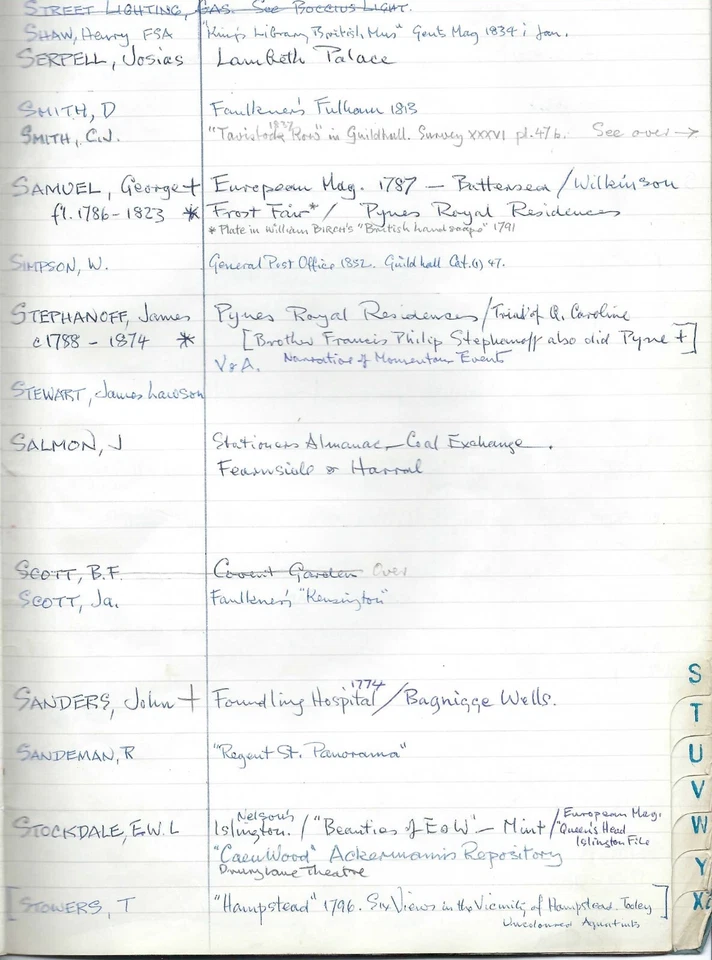 STREET LIGHTING, GAS. See BOCCIUS LIGHT.
SHAW, Henry FSA "King's Library, British Mus" Gents Mag 1834 i Jan.
SERPELL, Josias Lambeth Palace
SMITH, D Faulkner's Fulham 1813
SMITH, C.J. "Tavistock Row" 1837 in Guildhall. Survey XXXVI pl. 47b. See over →
SAMUEL, George + European Mag. 1787 – Battersea / Wilkinson
fl. 1786 - 1823 * Frost Fair* / Pynes Royal Residences
* Plate in William BIRCH's "British landscape" 1791
SIMPSON, W. General Post Office 1852. Guildhall Cat. (1) 47.
STEPHANOFF, James Pynes Royal Residences / Trial of Q. Caroline
c 1788 - 1874 * [Brother Francis Philip Stephanoff also did Pyne +]
V & A. Narrative of Momentous Event
STEWART, James Lawson
SALMON, J Stationers Almanac – Coal Exchange.
Fearnside or Harral
SCOTT, B.F. Covent Garden Over
SCOTT, Ja. Faulkner's "Kensington"
SANDERS, John + Foundling Hospital 1774 / Bagnigge Wells.
SANDEMAN, R "Regent St. Panorama"
STOCKDALE, E.W. L Nelson's Islington. / "Beauties of E & W" – Mint / European Mag. "Queen's Head Islington File
"Caen Wood" Ackermann's Repository
Drury Lane Theatre
[STOWERS, T "Hampstead" 1796. Six Views in the Vicinity of Hampstead. Tooley]
Uncoloured Aquatints
S
T
U
V
W
Y